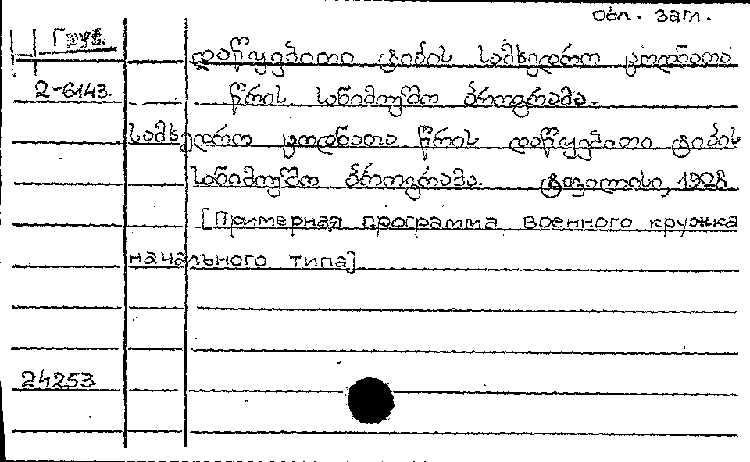 обл. загл.
Груз.
დაწყებითი ტიპის სამხედრო ცოდნათა
2-6143. წრის სანიმუშო პროგრამა.
სამხედრო ცოდნათა წრის დაწყებითი ტიპის
სანიმუშო პროგრამა. ტფილისი, 1928
[Примерная программа военного кружка
начального типа]
24253